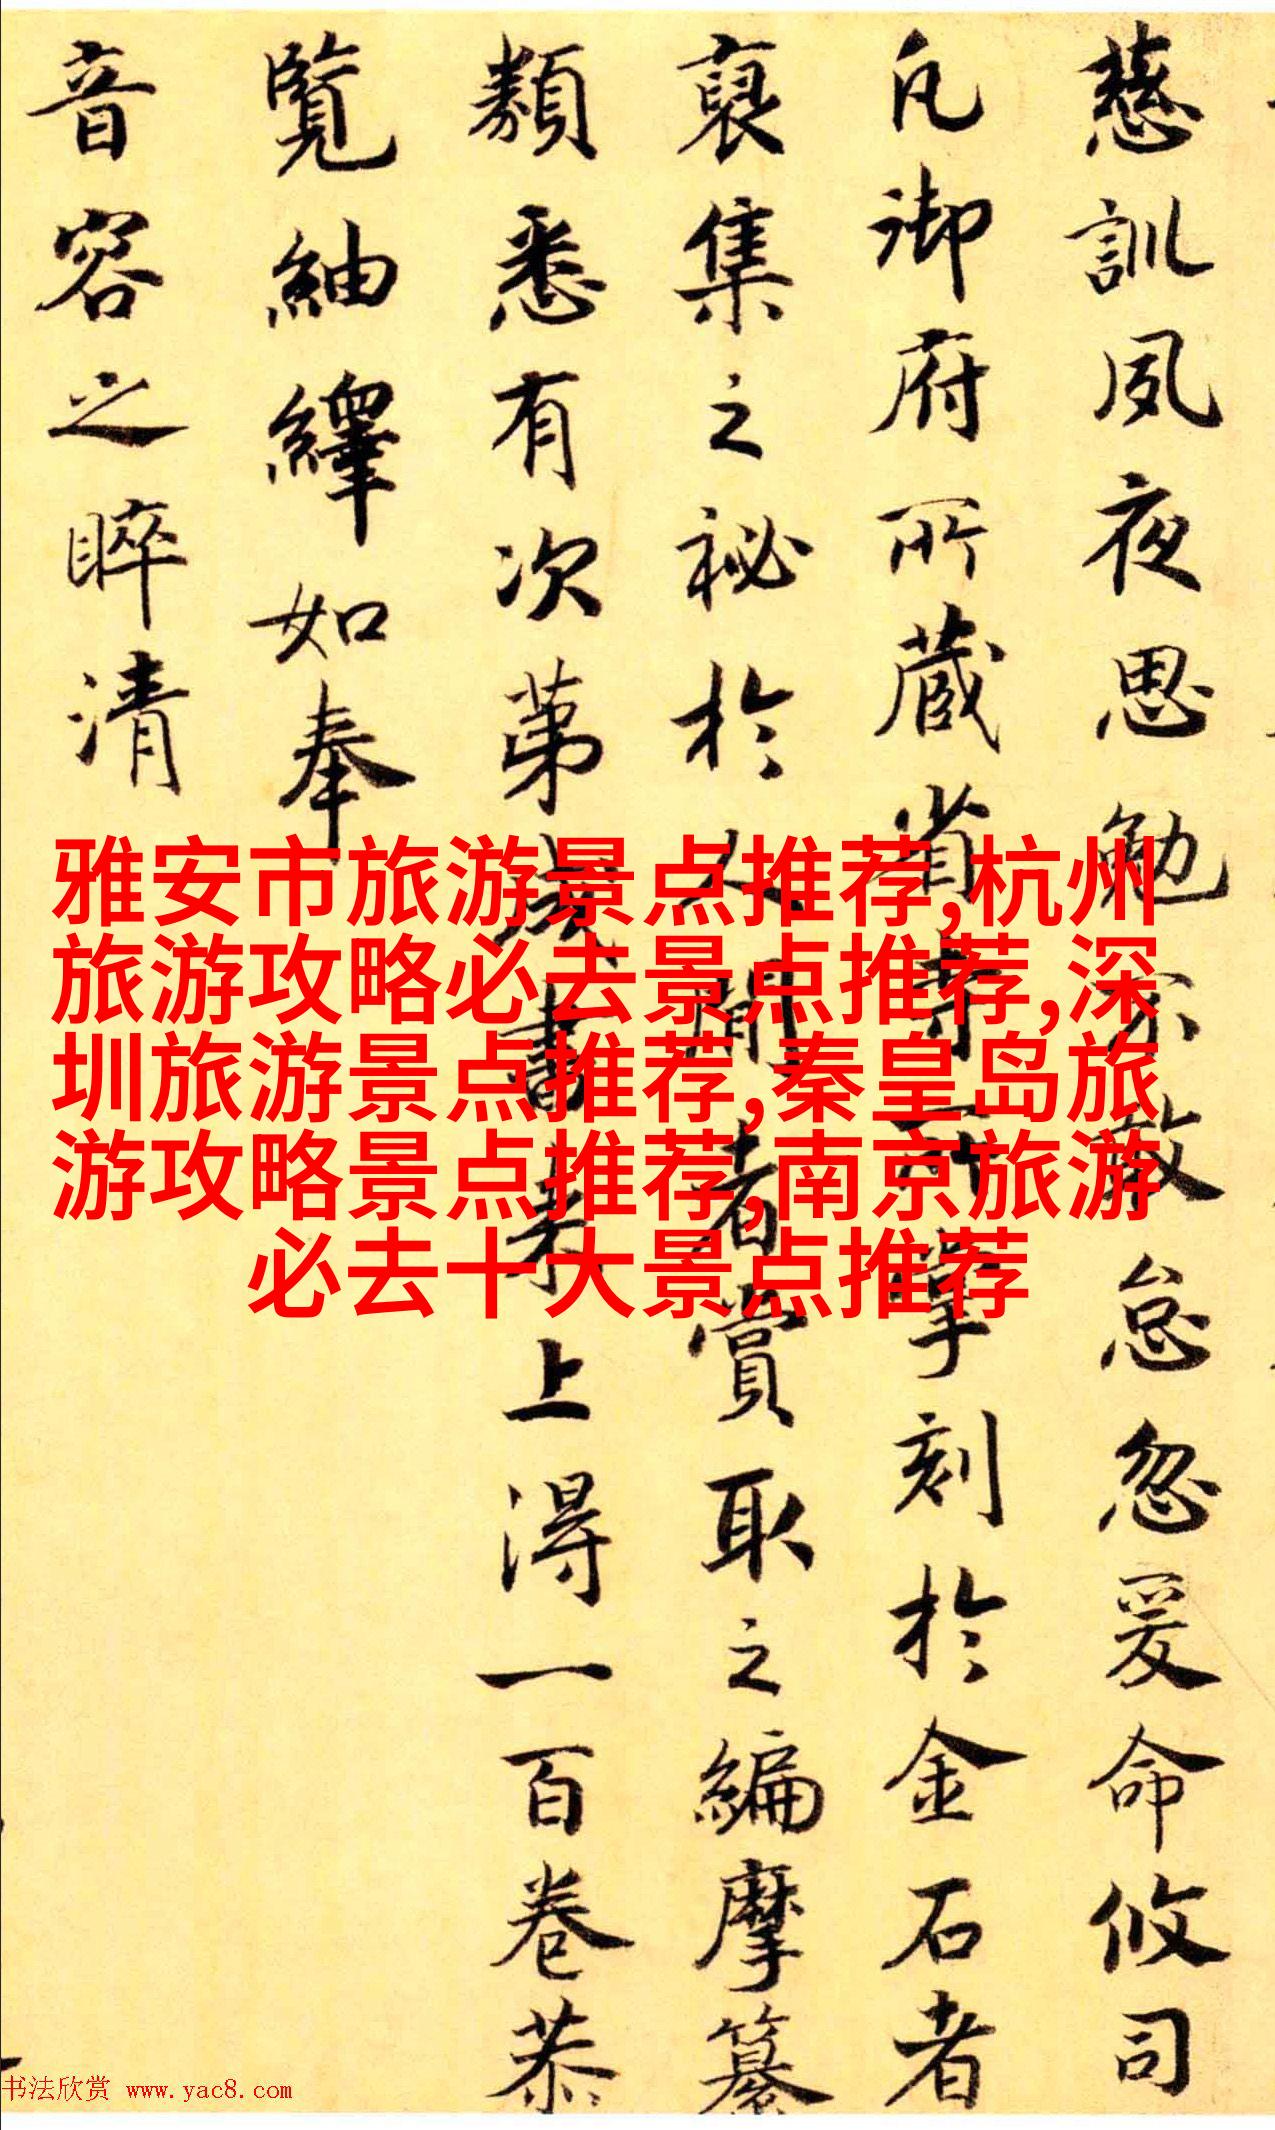 慈訓夙夜思勉不敢怠忽爰命攸司
凡御府所蔵省寺所掌刻於金石者
裒集之秘於人間者賞取之編摩纂
類悉有次第成書来上得一百卷恭
覽紬繹如奉
音容之睟清
雅安市旅游景点推荐,杭州
旅游攻略必去景点推荐,深
圳旅游景点推荐,秦皇岛旅
游攻略景点推荐,南京旅游
必去十大景点推荐
书法欣赏 www.yac8.com